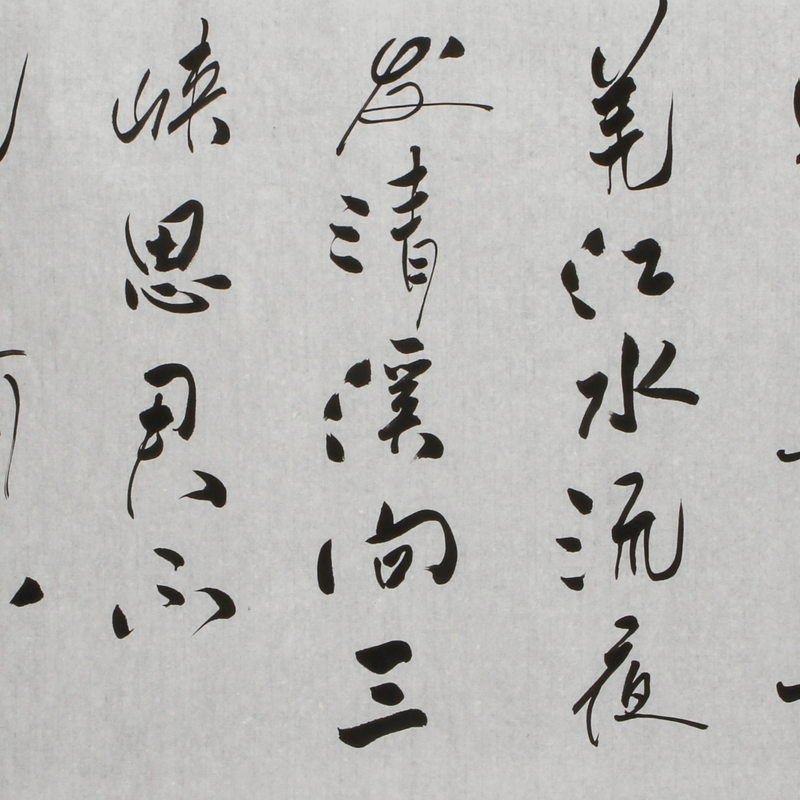 羌江水流夜
发清溪向三
峡思君不